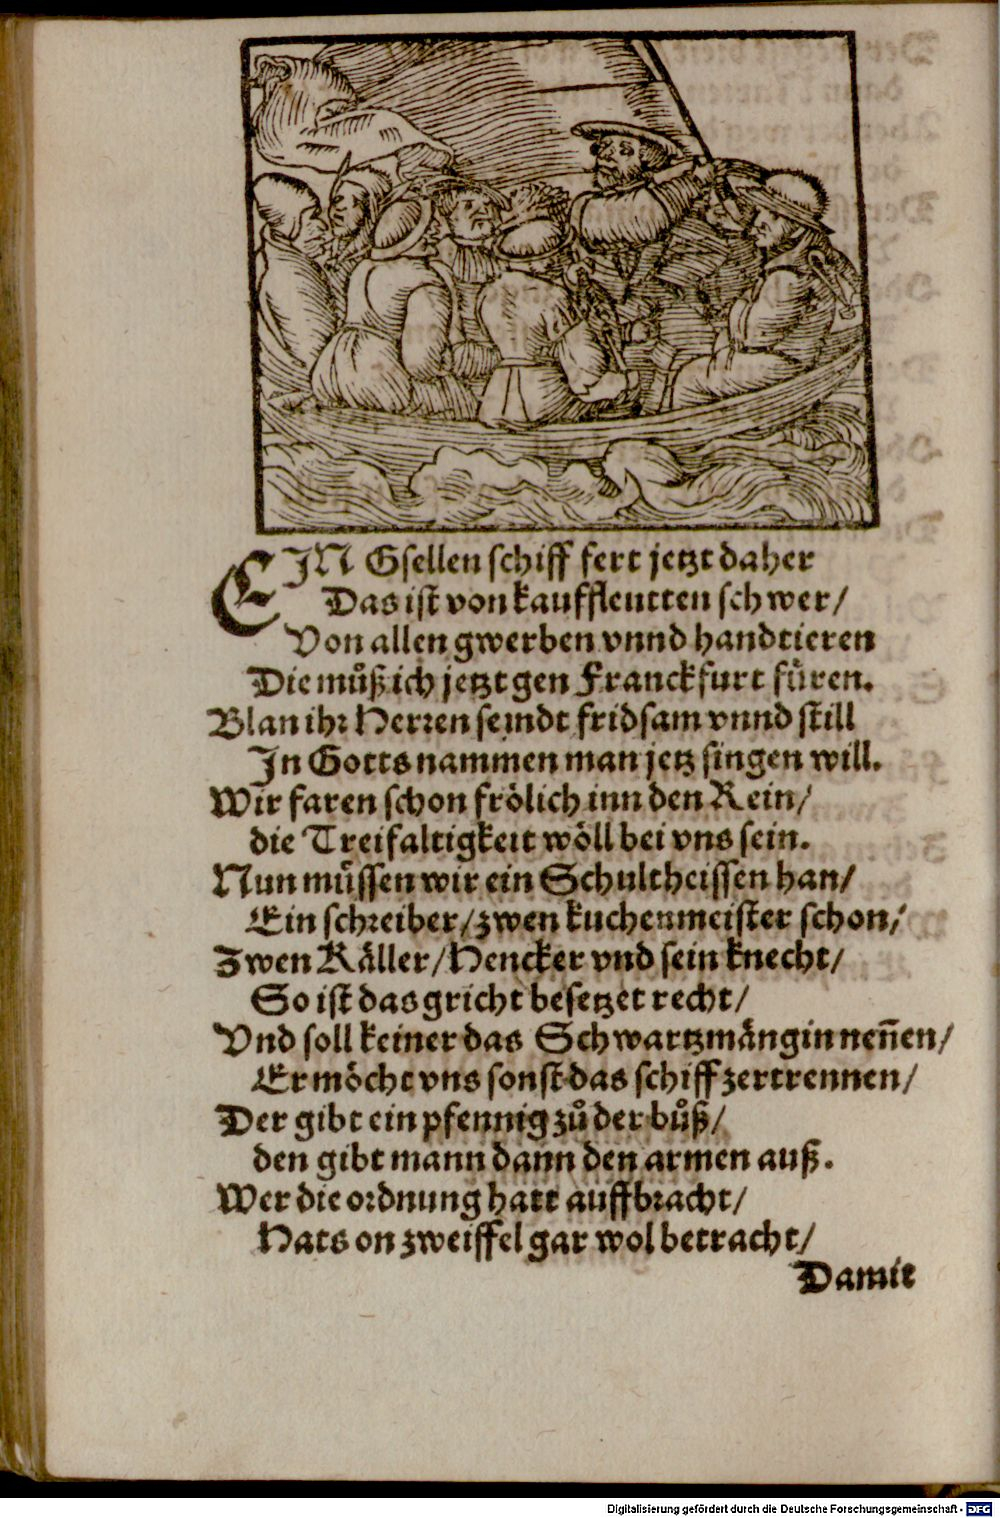 EIN Gsellen schiff fert jetzt daher
Das ist von kauffleutten schwer/
Von allen gwerben vnnd handtieren
Die můß ich jetzt gen Franckfurt füren.
Blan ihr Herren seindt fridsam vnnd still
In Gotts nammen man jetz singen will.
Wir faren schon frölich inn den Rein/
die Treifaltigkeit wöll bei vns sein.
Nun müssen wir ein Schultheissen han/
Ein schreiber/ zwen kuchenmeister schon/
Zwen Räller/ Hencker vnd sein knecht/
So ist das gricht besetzet recht/
Vnd soll keiner das Schwartzmängin neñen/
Er möcht vns sonst das schiff zertrennen/
Der gibt ein pfennig zů der bůß/
den gibt mann dann den armen auß.
Wer die ordnung hatt auffbracht/
Hats on zweiffel gar wol betracht/
Damit
Digitalisierung gefördert durch die Deutsche Forschungsgemeinschaft - DFG